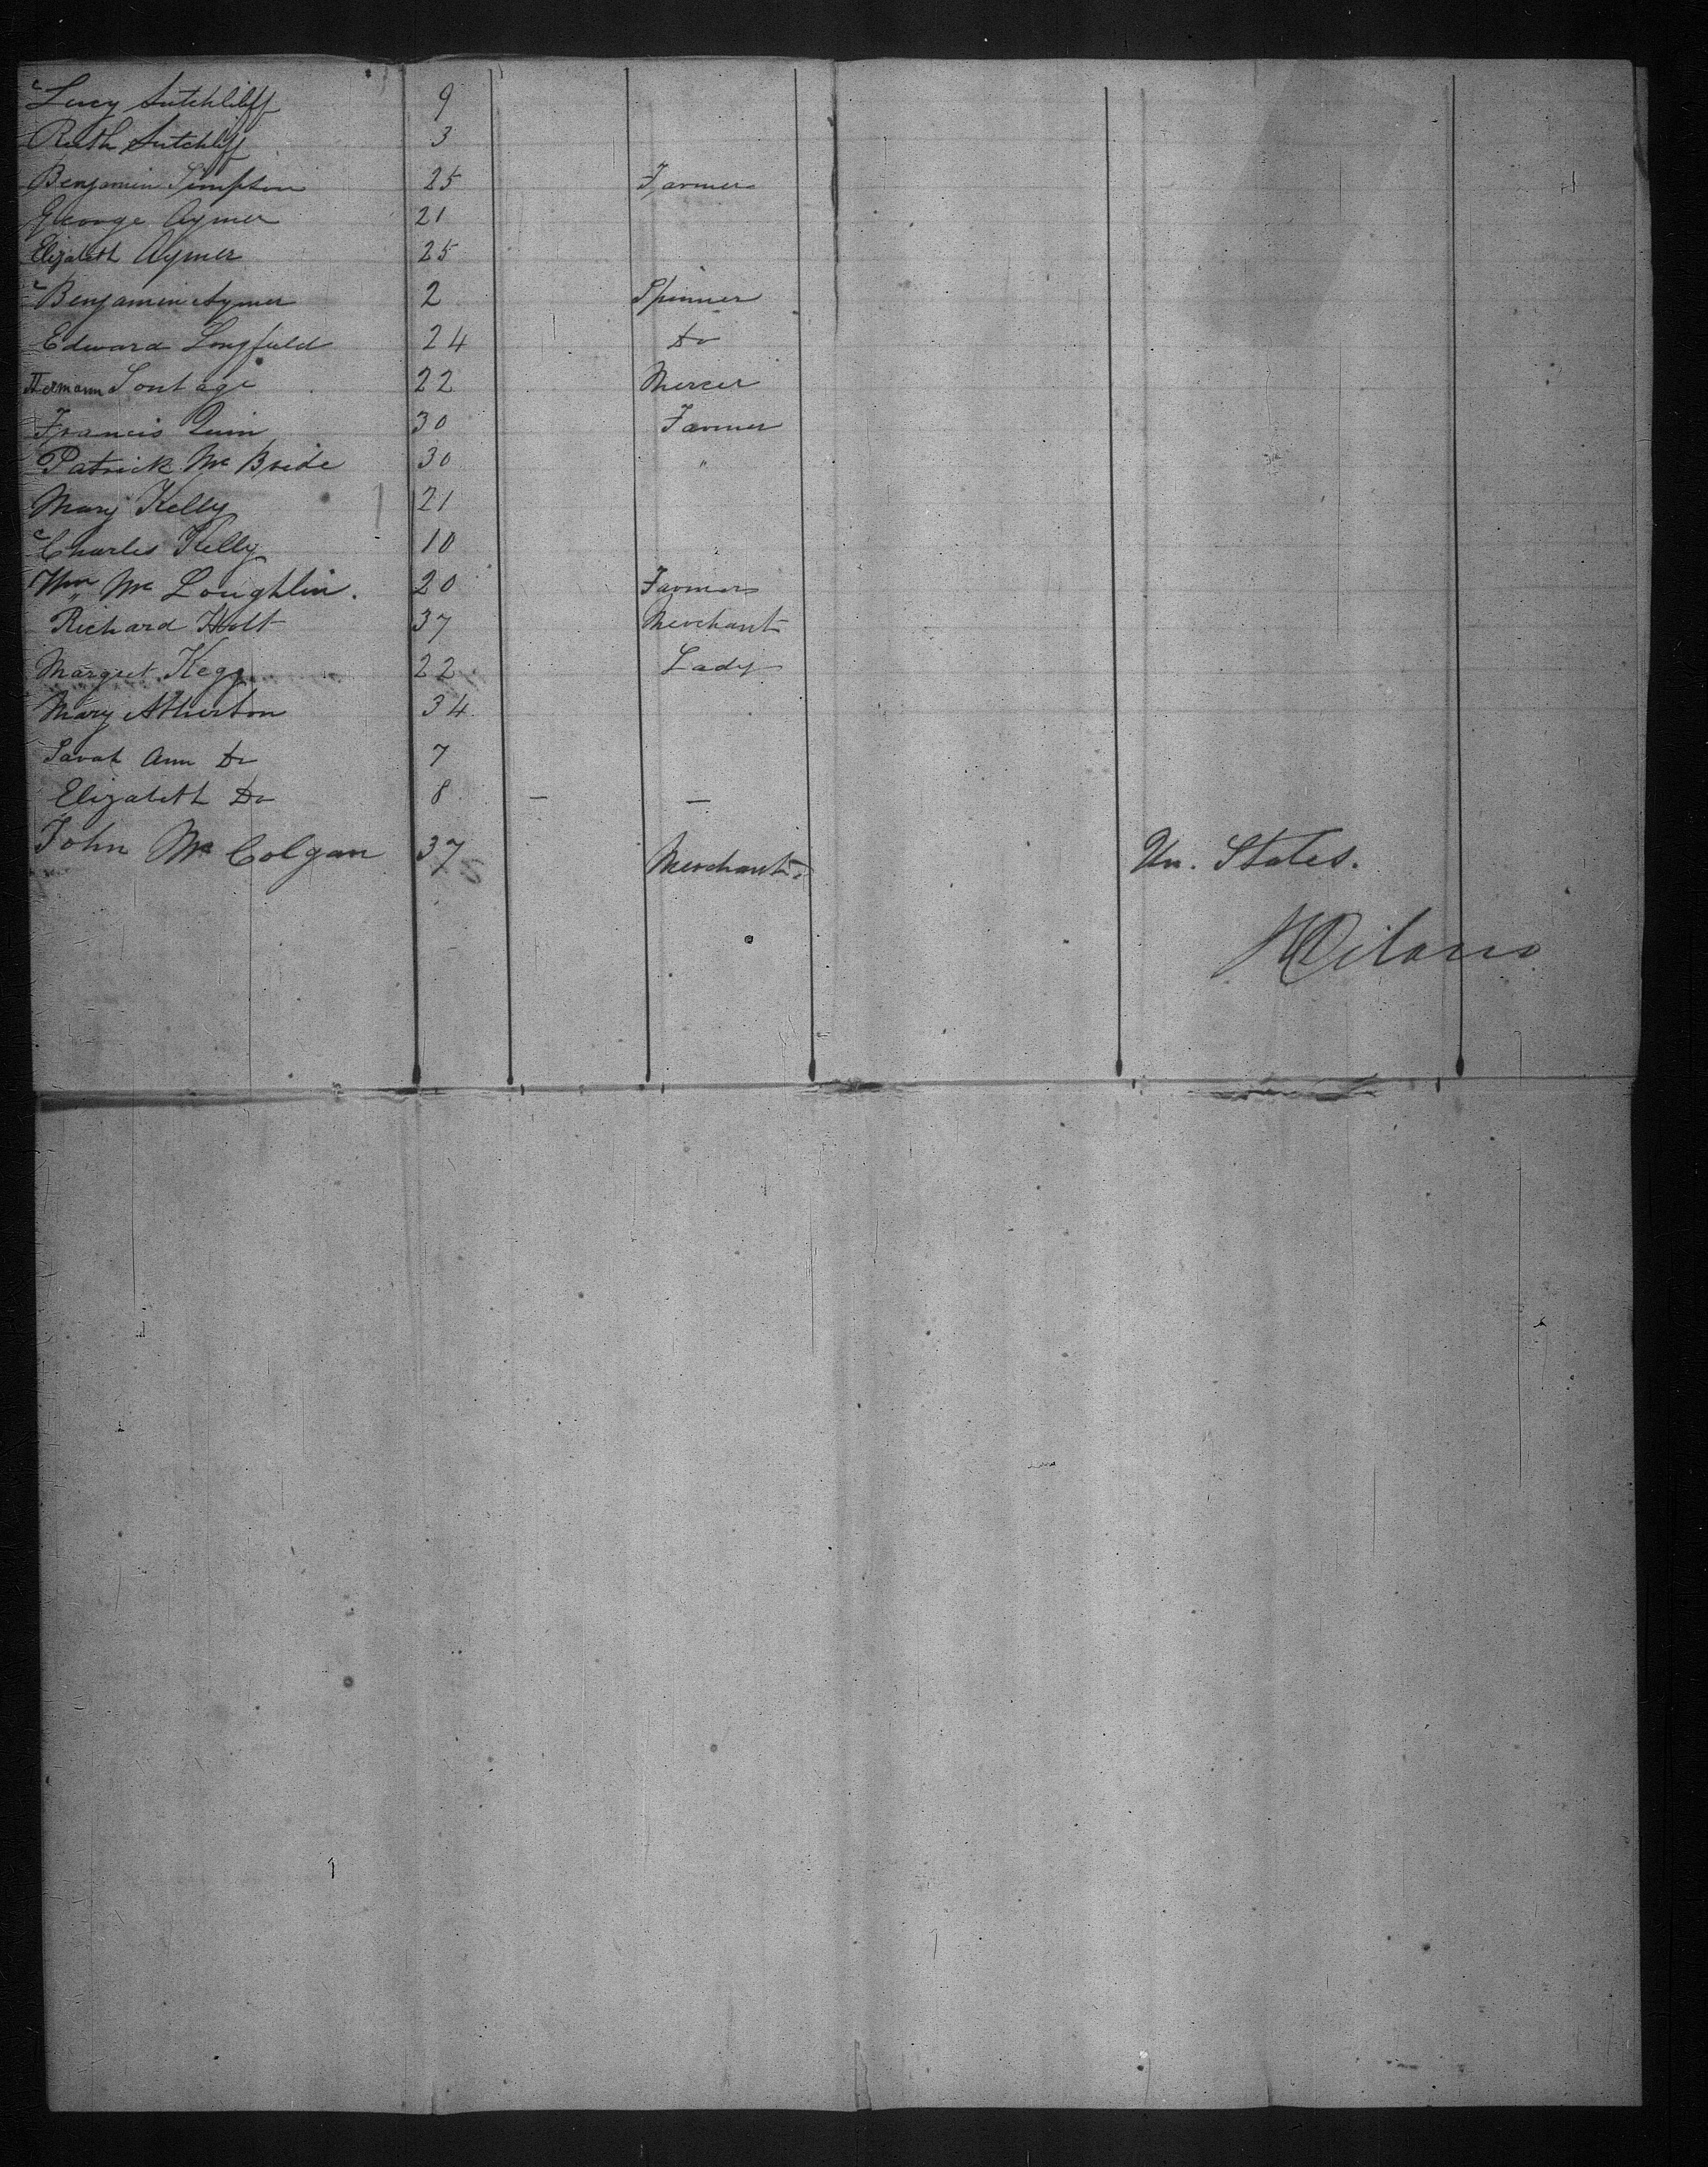 Lucy Sutchliff 9
Ruth Sutchliff 3
Benjamin Simpson 25 Farmer
George Aymer 21
Elizabeth Aymer 25
Benjamin Aymer 2 Spinner
Edward Longfield 24 Do
Hermann Sontage 22 Mercer
Francis Quin 30 Farmer
Patrick Mc Bride 30 "
Mary Kelly 21
Charles Kelly 10
Wm Mc Loughlin. 20 Farmer
Richard Holt 37 Merchant
Margret Kegg 22 Lady
Mary Atherton 34
Sarah Ann Do 7
Elizabeth Do 8 — —
John Mc Colgan 37 Merchant. Un. States.